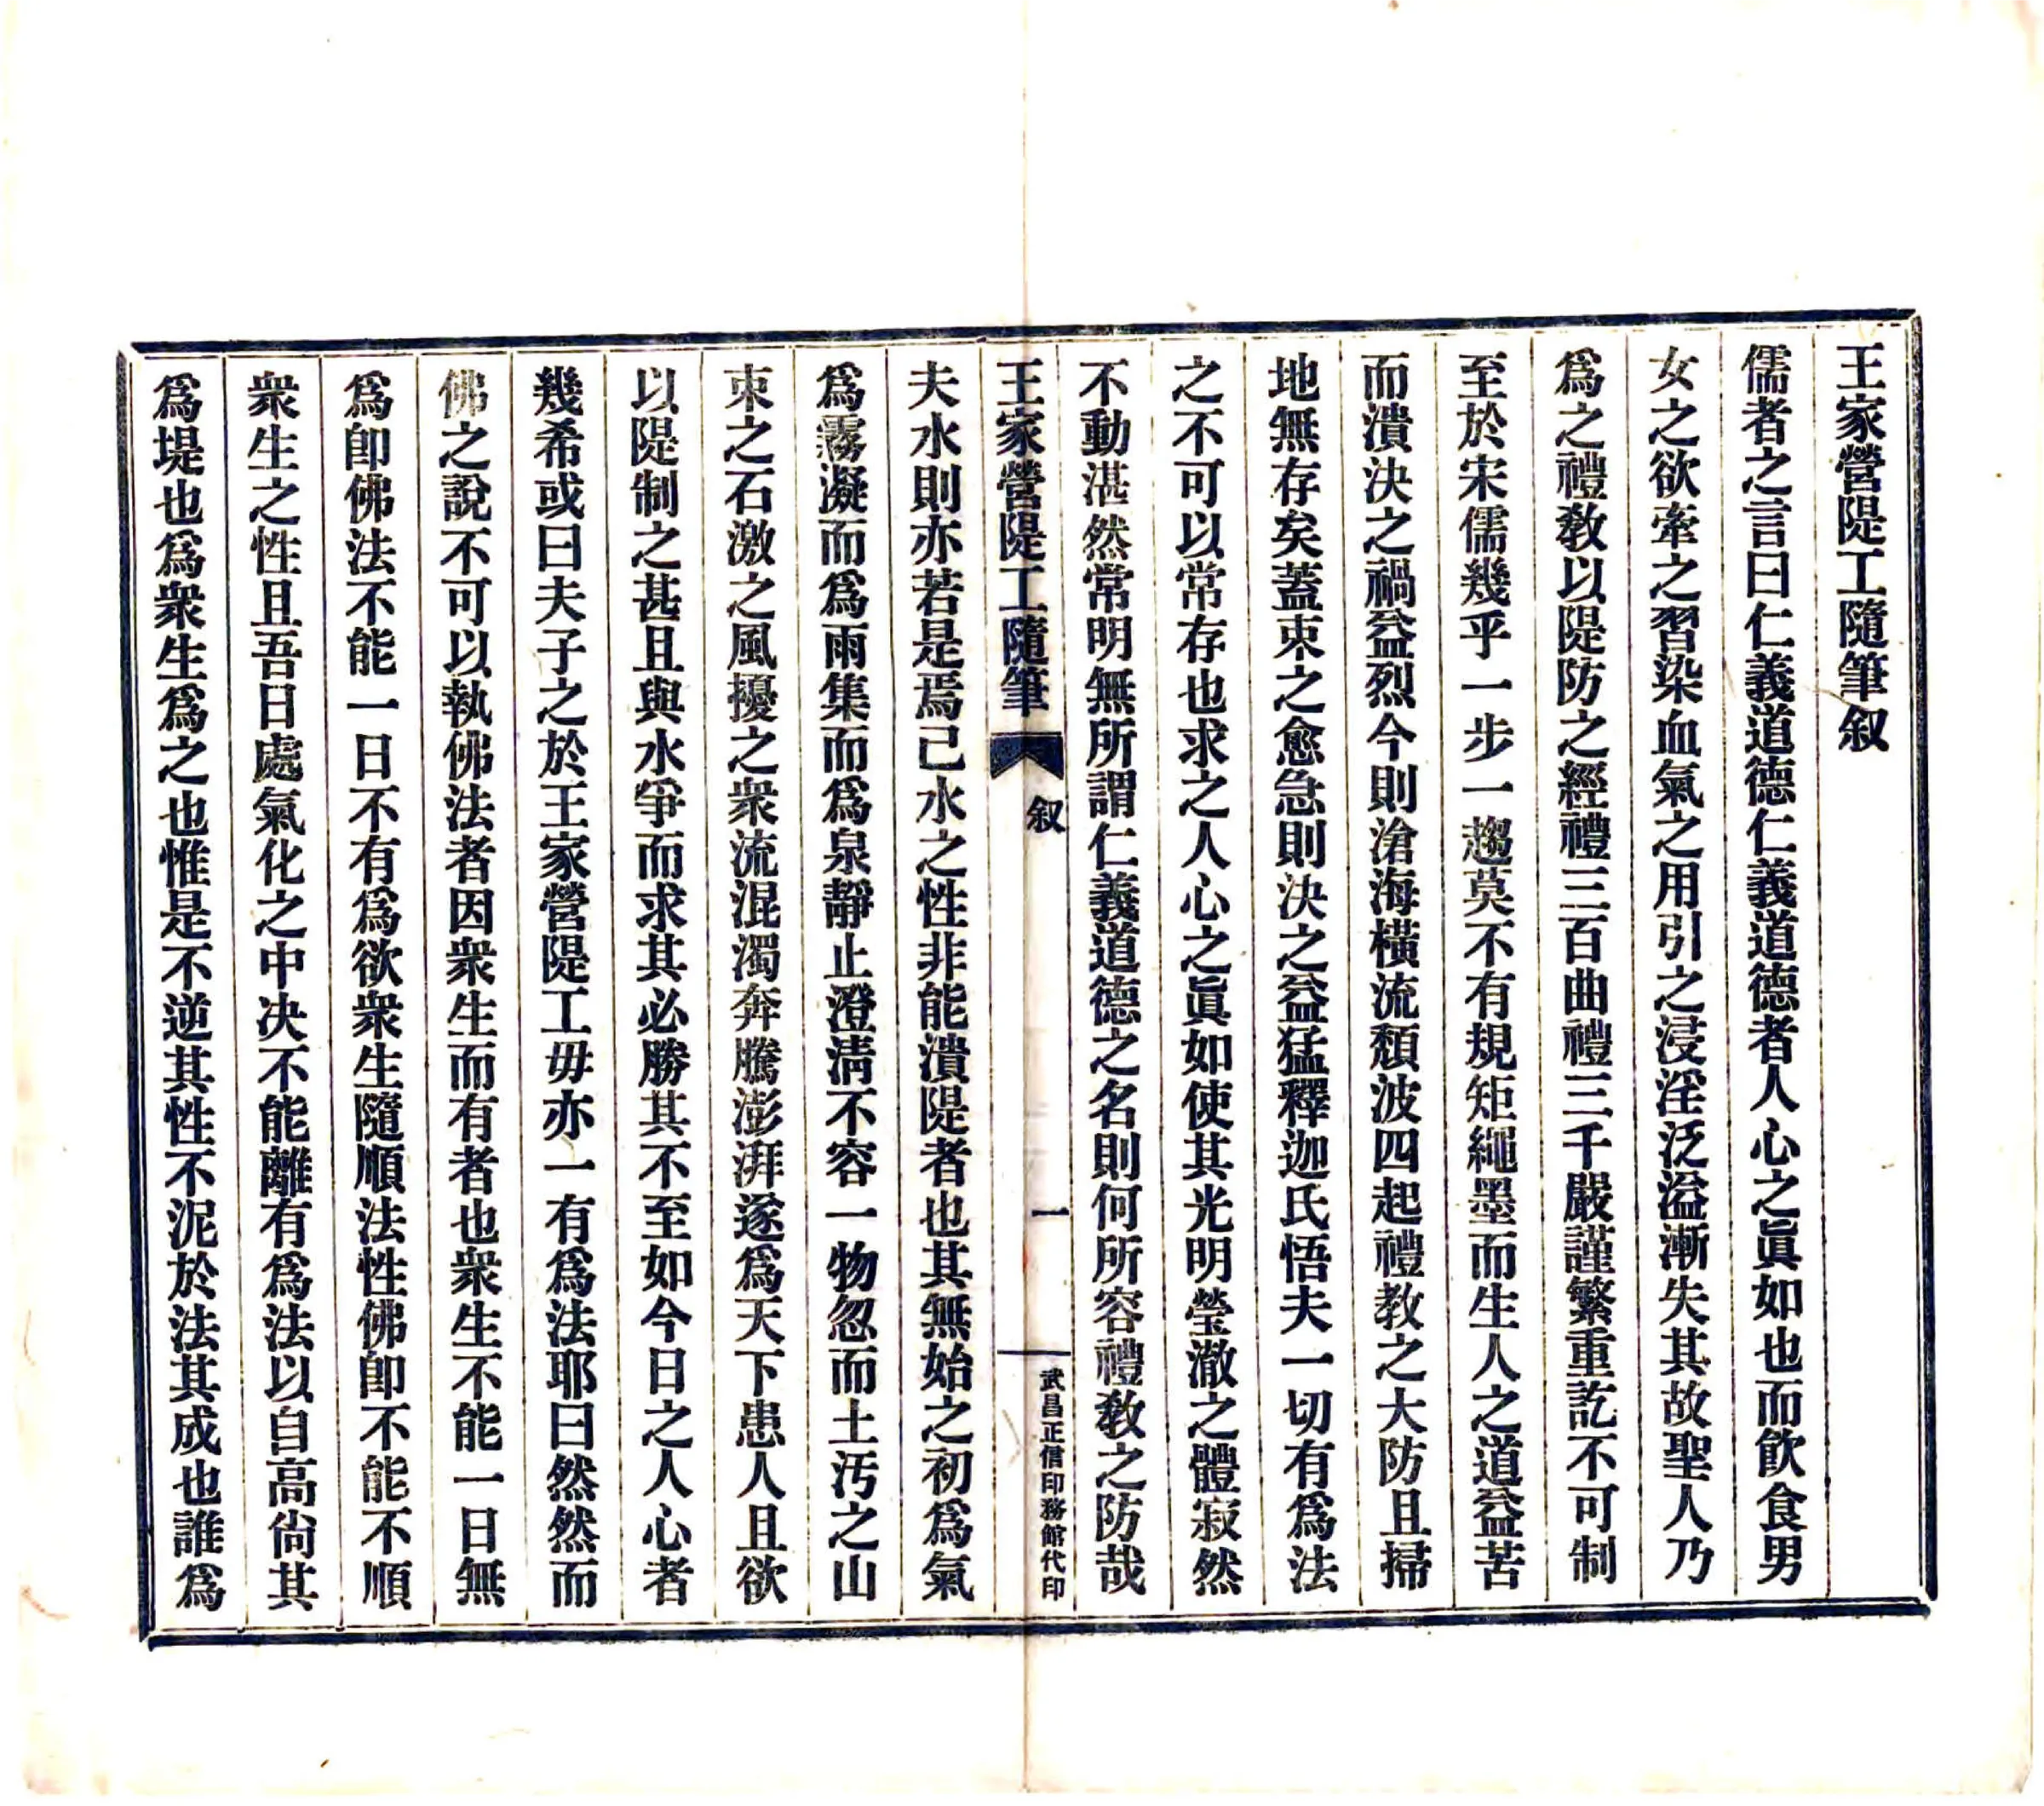 王家營隄工隨筆叙
儒者之言曰仁義道德仁義道德者人心之眞如也而飮食男
女之欲牽之習染血氣之用引之浸淫泛溢漸失其故聖人乃
爲之禮敎以隄防之經禮三百曲禮三千嚴謹繁重訖不可制
至於宋儒幾乎一步一趨莫不有規矩繩墨而生人之道益苦
而潰决之禍益烈今則滄海橫流頹波四起禮教之大防且掃
地無存矣蓋束之愈急則决之益猛釋迦氏悟夫一切有爲法
之不可以常存也求之人心之眞如使其光明瑩澈之體寂然
不動湛然常明無所謂仁義道德之名則何所容禮敎之防哉
王家營隄工隨筆
叙
一
武昌正信印務館代印
夫水則亦若是焉已水之性非能潰隄者也其無始之初爲氣
爲霧凝而爲雨集而爲泉靜止澄淸不容一物忽而土汚之山
束之石激之風擾之衆流混濁奔騰澎湃遂爲天下患人且欲
以隄制之甚且與水爭而求其必勝其不至如今日之人心者
幾希或曰夫子之於王家營隄工毋亦一有爲法耶曰然然而
佛之說不可以執佛法者因衆生而有者也衆生不能一日無
爲卽佛法不能一日不有爲欲衆生隨順法性佛卽不能不順
衆生之性且吾日處氣化之中决不能離有爲法以自高尙其
爲堤也爲衆生爲之也惟是不逆其性不泥於法其成也誰爲